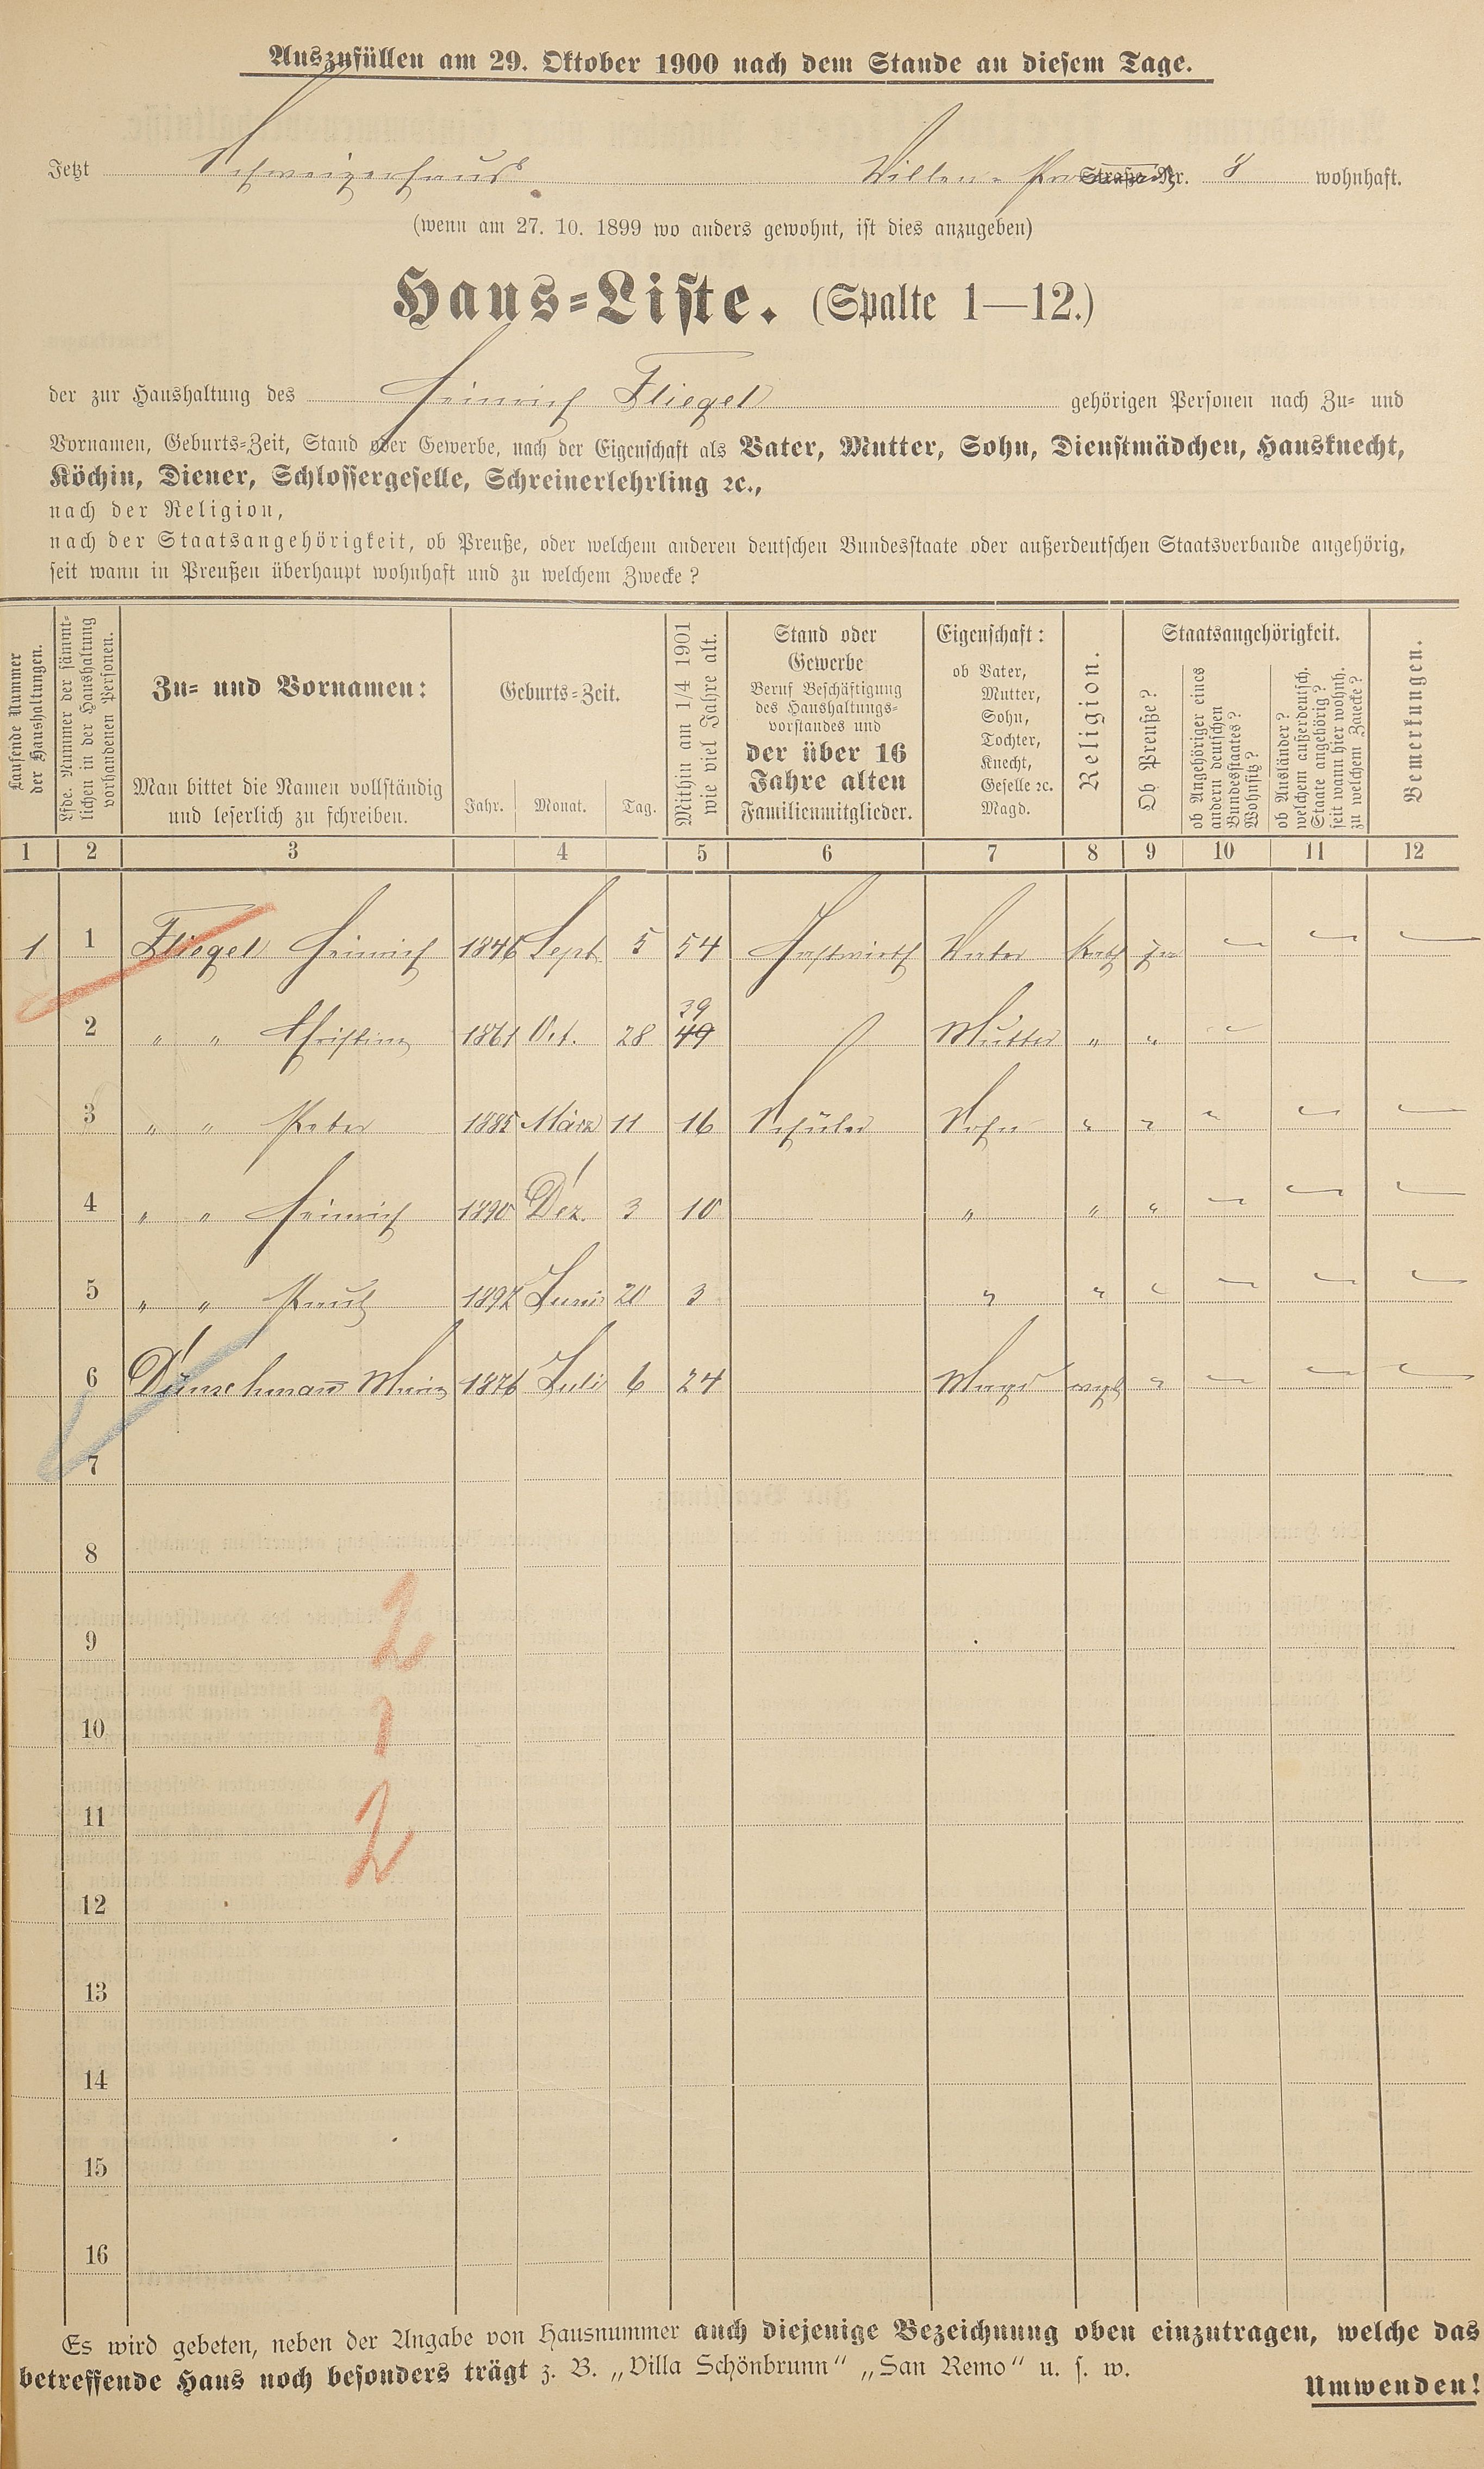 Auszufüllen am 29. Oktober 1900 nach dem Stande an diesem Tage.
Jetzt Schweizerhaus Villen-Promenade Straße Nr. 8 wohnhaft.
(wenn am 27. 10. 1899 wo anders gewohnt, ist dies anzugeben)
Haus-Liste. (Spalte 1—12.)
der zur Haushaltung des Heinrich Fliegel gehörigen Personen nach Zu- und
Vornamen, Geburts-Zeit, Stand oder Gewerbe, nach der Eigenschaft als Vater, Mutter, Sohn, Dienstmädchen, Hausknecht,
Köchin, Diener, Schlossergeselle, Schreinerlehrling ꝛc.,
nach der Religion,
nach der Staatsangehörigkeit, ob Preuße, oder welchem anderen deutschen Bundesstaate oder außerdeutschen Staatsverbande angehörig,
seit wann in Preußen überhaupt wohnhaft und zu welchem Zwecke?
Laufende Nummer
der Haushaltungen.
Lfde. Nummer der sämmt-
lichen in der Haushaltung
vorhandenen Personen.
Zu- und Vornamen:
Man bittet die Namen vollständig
und leserlich zu schreiben.
Geburts-Zeit.
Jahr. Monat. Tag.
Mithin am 1/4 1901
wie viel Jahre alt.
Stand oder
Gewerbe
Beruf Beschäftigung
des Haushaltungs-
vorstandes und
der über 16
Jahre alten
Familienmitglieder.
Eigenschaft:
ob Vater,
Mutter,
Sohn,
Tochter,
Knecht,
Geselle ꝛc.
Magd.
Religion.
Staatsangehörigkeit.
Ob Preuße?
ob Angehöriger eines
andern deutschen
Bundesstaates?
Wohnsitz?
ob Ausländer?
welchem außerdeutsch.
Staate angehörig?
seit wann hier wohnh.
zu welchem Zwecke?
Bemerkungen.
1 2 3 4 5 6 7 8 9 10 11 12
1 1 Fliegel Heinrich 1846 Sept 5 54 Gastwirth Vater Kath ja — — —
2 " " Christina 1861 Oct. 28 39 49 Mutter " " —
3 " " Peter 1885 März 11 16 Schüler Sohn " " " — —
4 " " Heinrich 1890 Dez. 3 10 " " " — — —
5 " " Paul 1897 Juni 20 3 " " " — — —
6 Dünschmann Maria 1876 Juli 6 24 Magd evgl " — — —
7
8
9 2
10 1
11 2
12
13
14
15
16
Es wird gebeten, neben der Angabe von Hausnummer auch diejenige Bezeichnung oben einzutragen, welche das
betreffende Haus noch besonders trägt z. B. „Villa Schönbrunn“ „San Remo“ u. s. w.
Umwenden!